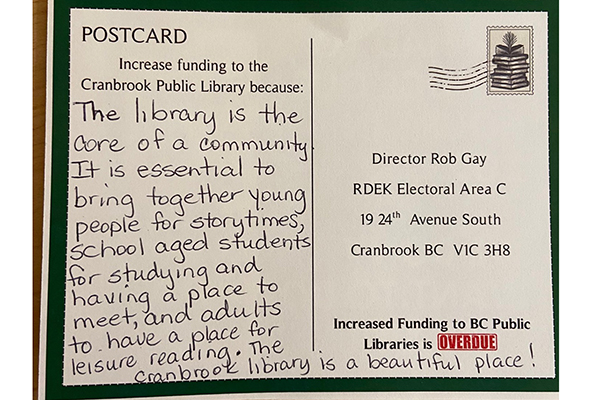 POSTCARD
Increase funding to the
Cranbrook Public Library because:
The library is the
core of a community.
It is essential to
bring together young
people for storytimes,
school aged students
for studying and
having a place to
meet, and adults
to have a place for
leisure reading. The
Cranbrook library is a beautiful place!
Director Rob Gay
RDEK Electoral Area C
19 24th Avenue South
Cranbrook BC V1C 3H8
Increased Funding to BC Public
Libraries is OVERDUE